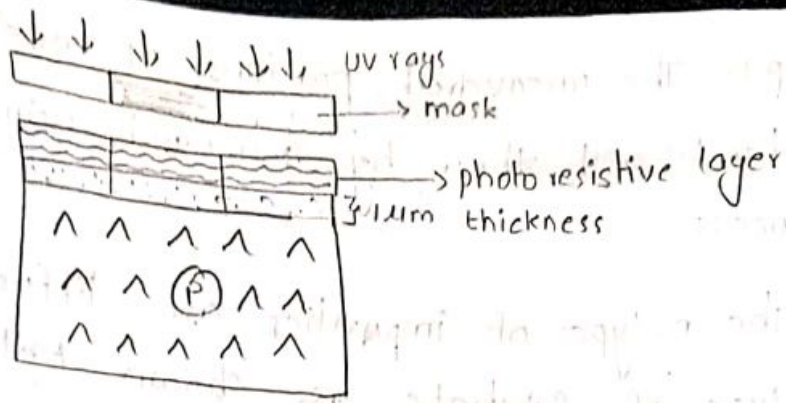 UV rays
mask
photo resistive layer
1 μm thickness
P